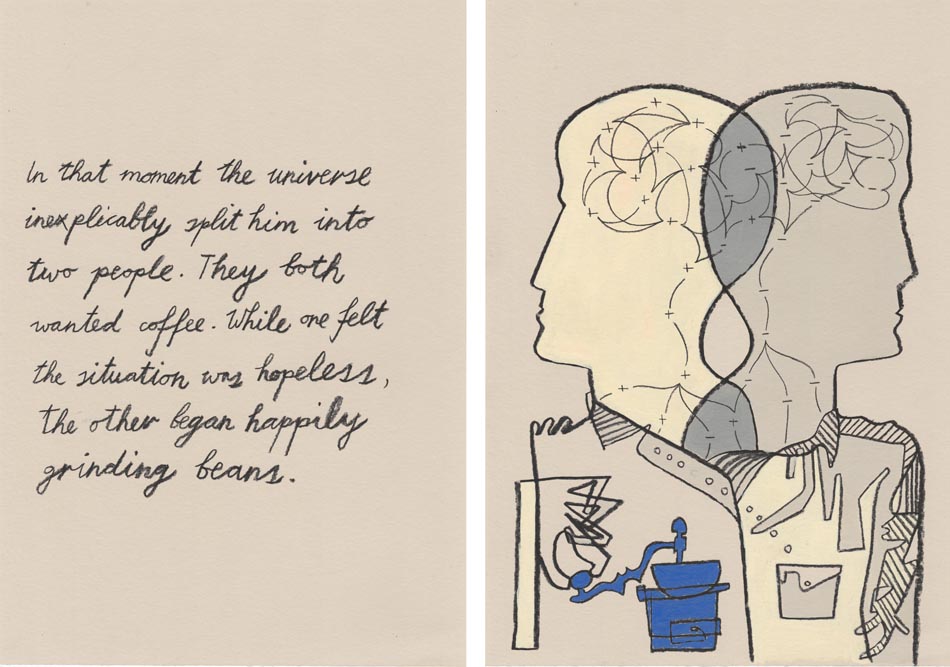 In that moment the universe
inexplicably split him into
two people. They both
wanted coffee. While one felt
the situation was hopeless,
the other began happily
grinding beans.